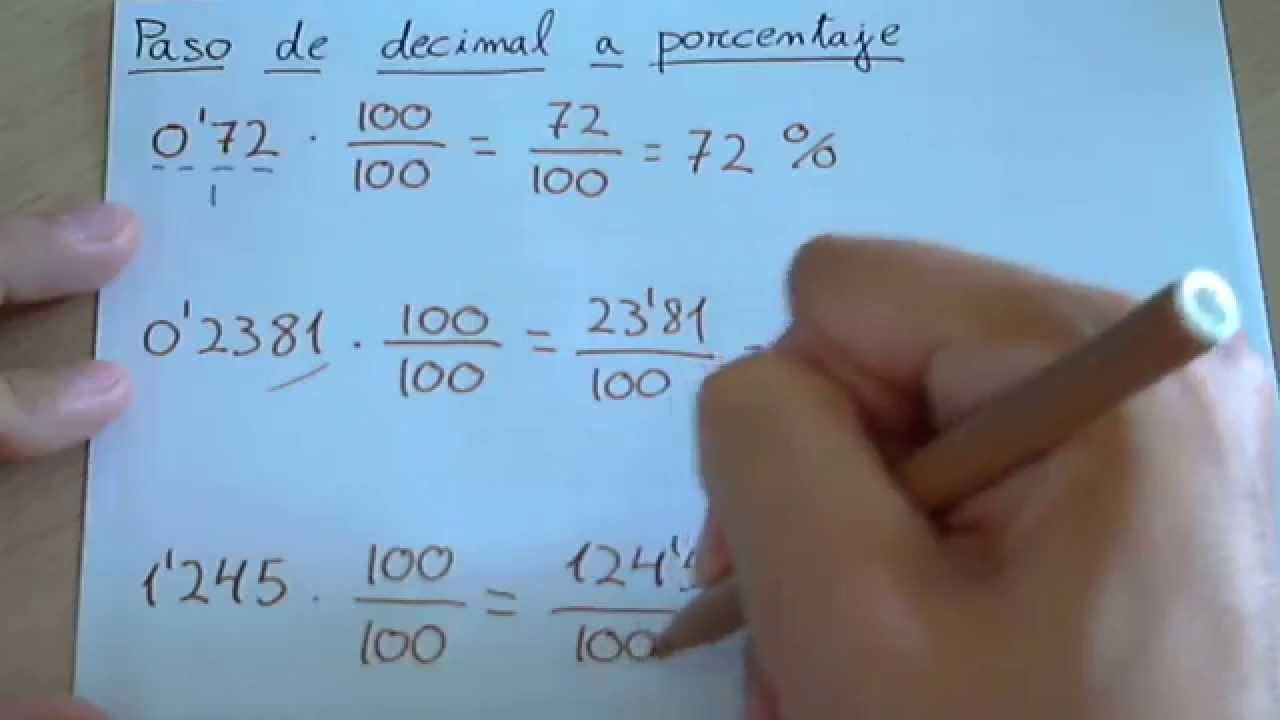 Paso de decimal a porcentaje
0'72 · 100/100 = 72/100 = 72 %
0'2381 · 100/100 = 23'81/100
1'245 · 100/100 = 124'/100